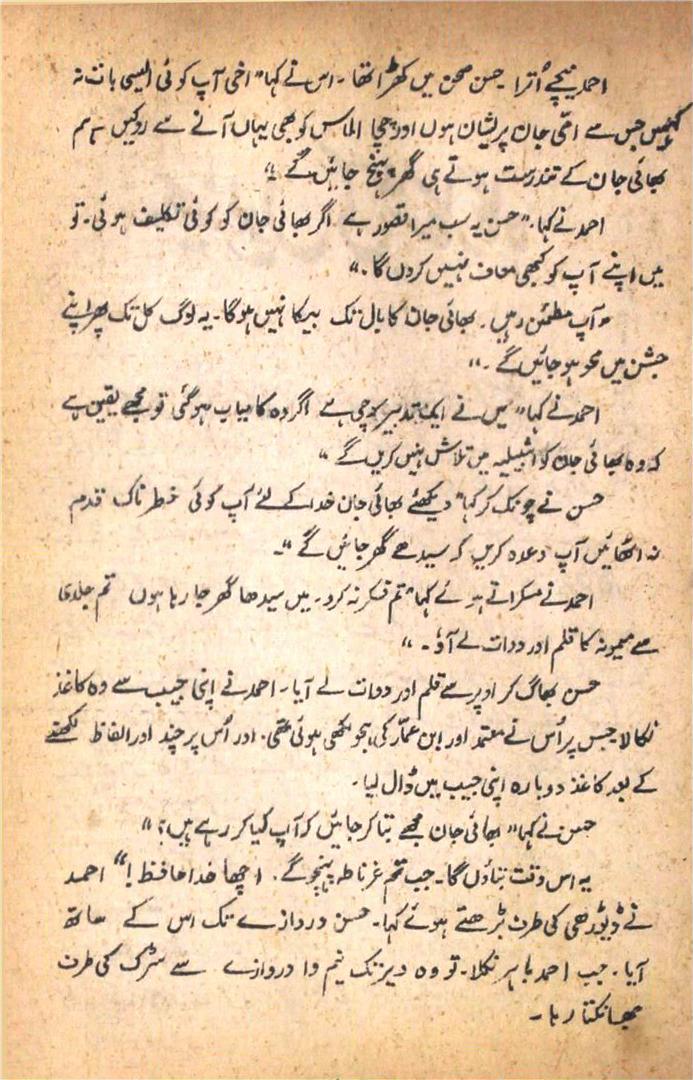 احمد نیچے اُترا۔ حسن صحن میں کھڑا تھا۔ اس نے کہا " اخی آپ کوئی ایسی بات نہ
کہیں جس سے امّی جان پریشان ہوں اور چچا الماس کو بھی یہاں آنے سے روکیں ہم
بھائی جان کے تندرست ہوتے ہی گھر پہنچ جائیں گے "
احمد نے کہا۔ " حسن یہ سب میرا قصور ہے اگر بھائی جان کو کوئی تکلیف ہوئی۔ تو
میں اپنے آپ کو کبھی معاف نہیں کروں گا۔"
" آپ مطمئن رہیں۔ بھائی جان کا بال تک بیکا نہیں ہوگا۔ یہ لوگ کل تک پھر اپنے
جشن میں محو ہو جائیں گے ۔"
احمد نے کہا " میں نے ایک تدبیر سوچی ہے اگر وہ کامیاب ہوگئی تو مجھے یقین ہے
کہ وہ بھائی جان کو اشبیلیہ میں تلاش نہیں کریں گے "
حسن نے چونک کر کہا " دیکھئے بھائی جان خدا کے لئے آپ کوئی خطرناک قدم
نہ اٹھائیں آپ وعدہ کریں کہ سیدھے گھر جائیں گے "۔
احمد نے مسکراتے ہوئے کہا " تم فکر نہ کرو۔ میں سیدھا گھر جا رہا ہوں تم جلدی
سے میمونہ کا قلم اور دوات لے آؤ۔ "
حسن بھاگ کر اوپر سے قلم اور دوات لے آیا۔ احمد نے اپنی جیب سے وہ کاغذ
نکالا جس پر اُس نے معتمد اور ابن عمّار کی ہجو لکھی ہوئی تھی۔ اور اُس پر چند اور الفاظ لکھنے
کے بعد کاغذ دوبارہ اپنی جیب میں ڈال لیا۔
حسن نے کہا " بھائی جان مجھے بتا کر جائیں کہ آپ کیا کر رہے ہیں؟ "
یہ اس وقت بتاؤں گا۔ جب تم غرناطہ پہنچو گے۔ اچھا خدا حافظ !" احمد
نے ڈیوڑھی کی طرف بڑھتے ہوئے کہا۔ حسن دروازے تک اس کے ساتھ
آیا۔ جب احمد باہر نکلا۔ تو وہ دیر تک نیم وا دروازے سے سڑک کی طرف
جھانکتا رہا ۔